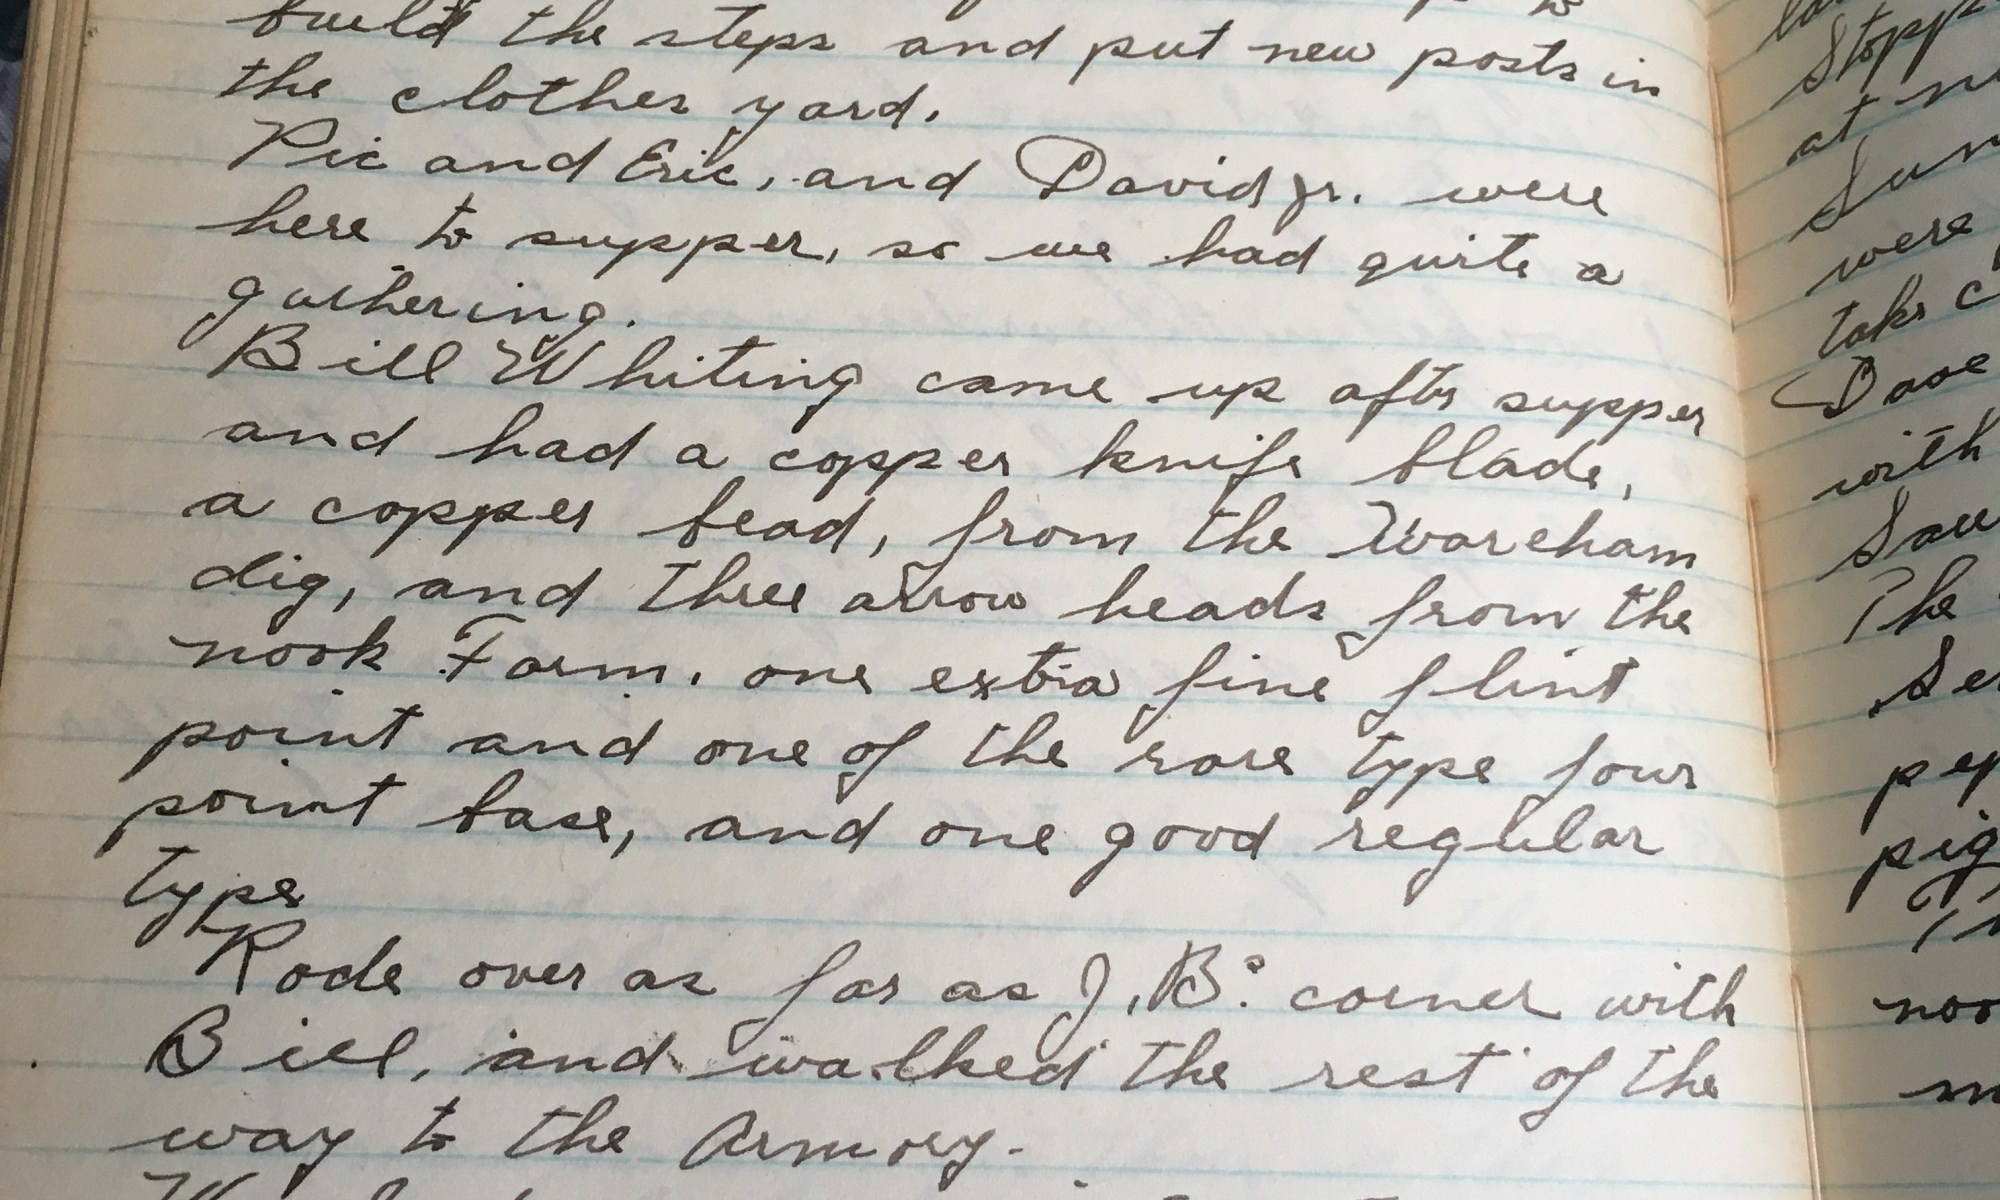 build the steps and put new posts in
the clothes yard.
Pic and Eric, and David Jr. were
here to supper, so we had quite a
gathering.
Bill Whiting came up after supper
and had a copper knife blade,
a copper bead, from the Wareham
dig, and three arrow heads from the
nook Farm. one extra fine flint
point and one of the rare type four
point base, and one good regular
type
Rode over as far as J.B.s corner with
Bill, and walked the rest of the
way to the Armory.
Stopp
at
Sun
were
take c
Dave
with
Sau
The
Se
pep
pig
noo